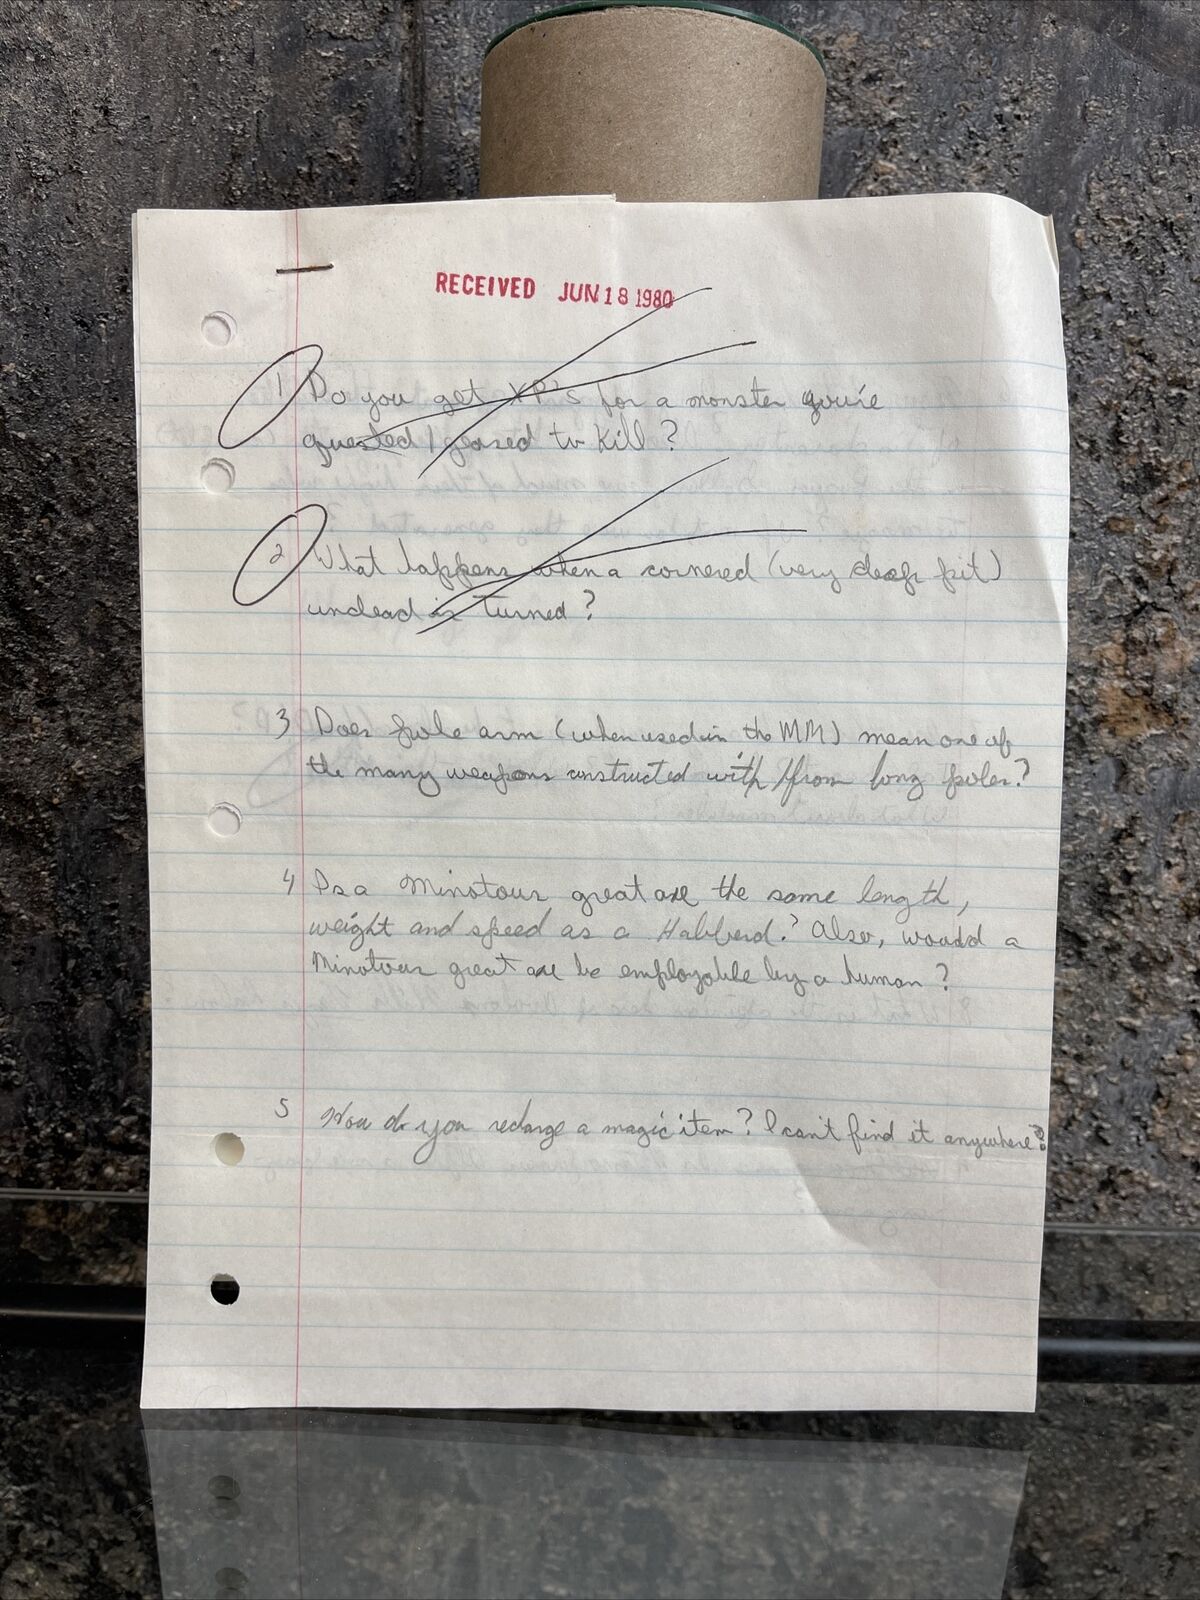 RECEIVED JUN 18 1980
1 Do you get XP's for a monster you're
quested / geased to kill?
2 What happens when a cornered (very deep pit)
undead is turned?
3 Does pole arm (when used in the MM) mean one of
the many weapons constructed with/from long poles?
4 Is a Minotour great axe the same length,
weight and speed as a Halberd? Also, would a
Minotour great axe be employable by a human?
5 How do you recharge a magic item? I can't find it anywhere?